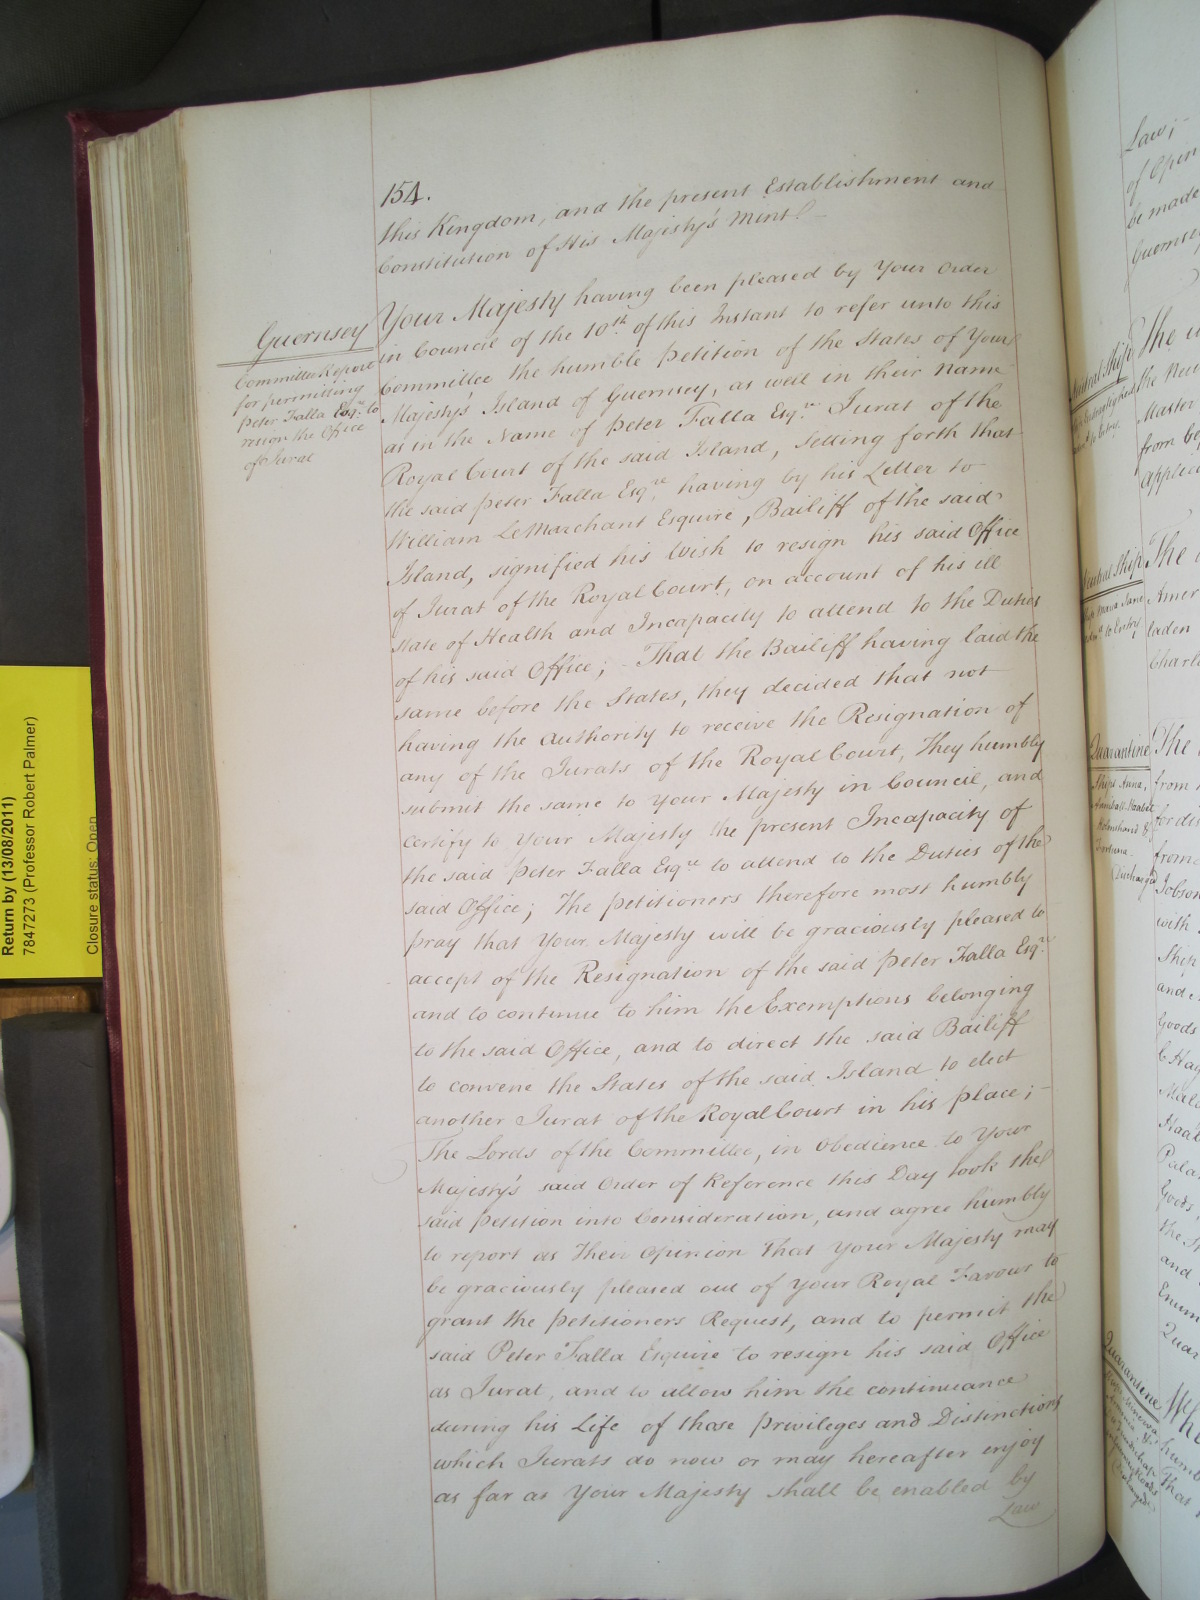 154.
this Kingdom, and the present Establishment and
Constitution of His Majesty's Mint.
Guernsey
Committee Report
for permitting
Peter Falla Esqre. to
resign the Office
of Jurat
Your Majesty having been pleased by Your Order
in Council of the 10th. of this Instant to refer unto this
Committee the humble Petition of the States of Your
Majesty's Island of Guernsey, as well in their Name
as in the Name of Peter Falla Esqre. Jurat of the
Royal Court of the said Island, setting forth that
the said Peter Falla Esqre. having by his Letter to
William Le Marchant Esquire, Bailiff of the said
Island, signified his Wish to resign his said Office
of Jurat of the Royal Court, on account of his ill
State of Health and Incapacity to attend to the Duties
of his said Office; That the Bailiff having laid the
same before the States, they decided that not
having the Authority to receive the Resignation of
any of the Jurats of the Royal Court, They humbly
submit the same to Your Majesty in Council, and
certify to Your Majesty the present Incapacity of
the said Peter Falla Esqre to attend to the Duties of the
said Office; The Petitioners therefore most humbly
pray that Your Majesty will be graciously pleased to
accept of the Resignation of the said Peter Falla Esqre.
and to continue to him the Exemptions belonging
to the said Office, and to direct the said Bailiff
to convene the States of the said Island to elect
another Jurat of the Royal Court in his place;
The Lords of the Committee, in Obedience to Your
Majesty's said Order of Reference this Day took the
said Petition into Consideration, and agree humbly
to report as Their Opinion That Your Majesty may
be graciously pleased out of Your Royal Favour to
grant the Petitioners Request, and to permit the
said Peter Falla Esquire to resign his said Office
as Jurat, and to allow him the continuance
during his Life of those Privileges and Distinctions
which Jurats do now or may hereafter enjoy
as far as Your Majesty shall be enabled by
Law
Return by (13/08/2011)
7847273 (Professor Robert Palmer)
Closure status: Open
Law;
of Opin
be made
Guernsey
Neutral Ship
The
the Neu
Master
from be
applica
Neutral Ship
The
Amer
laden
Charl
Quarantine
Ships Anna,
The
from
for dis
from
Jobson
with
Ship
and
Goods
Mal
Haa
Pala
Goods,
the S
and
Enum
Quar
Quarantine
humb
That